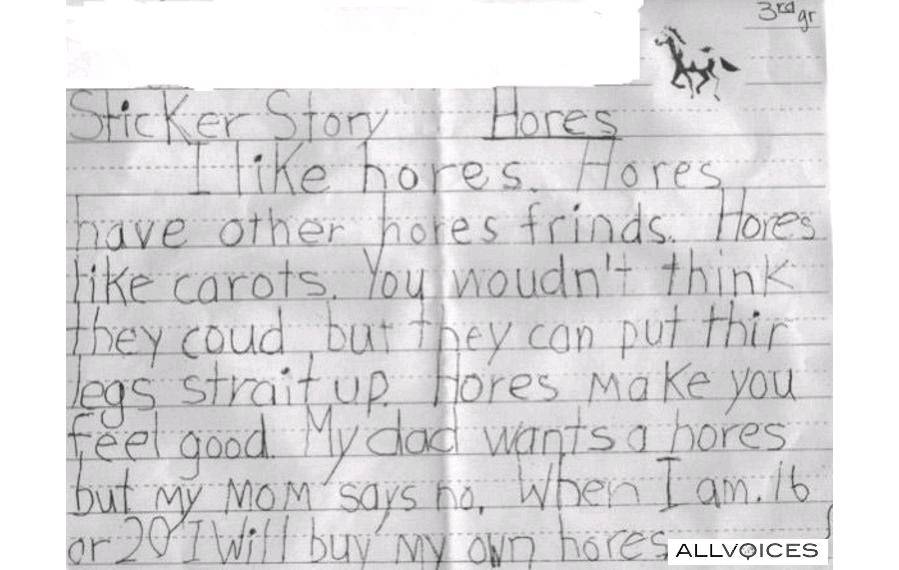 3rd gr
Sticker Story Hores
I like hores. Hores
have other hores frinds. Hores
like carots. You woudn't think
they coud but they can put thir
legs strait up. Hores make you
feel good. My dad wants a hores
but my mom says no. When I am. 16
or 20 I will buy my own hores
ALLVOICES